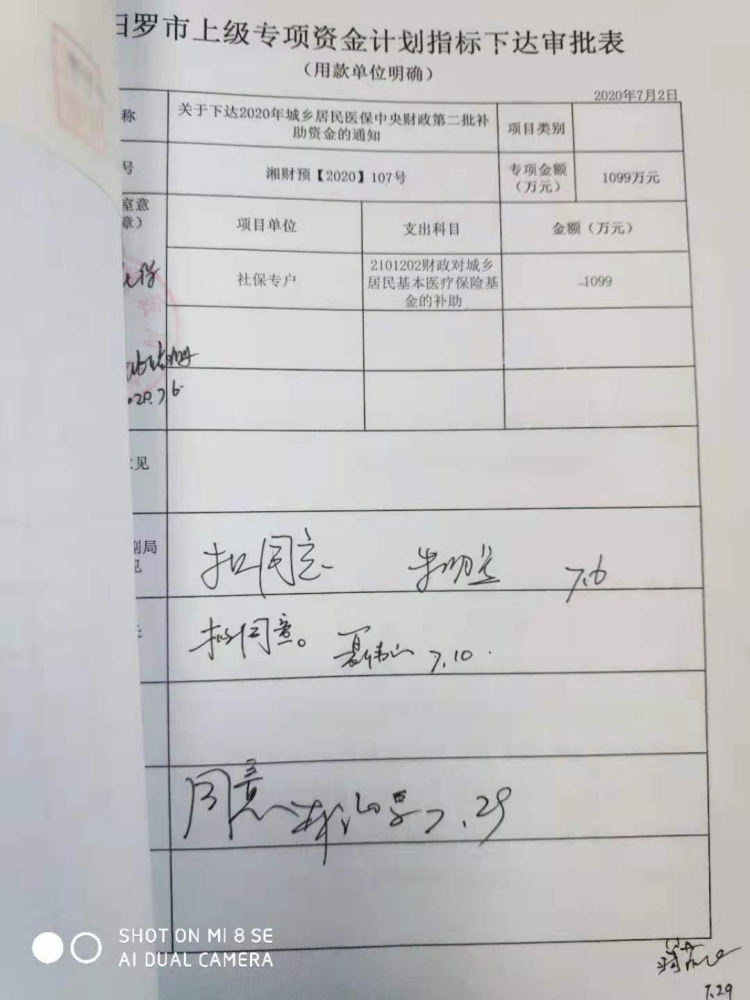 汨罗市上级专项资金计划指标下达审批表
（用款单位明确）
2020年7月2日
称
关于下达2020年城乡居民医保中央财政第二批补
助资金的通知
项目类别
号
湘财预【2020】107号
专项金额
（万元）
1099万元
室意
章）
项目单位
支出科目
金额（万元）
社保专户
2101202财政对城乡
居民基本医疗保险基
金的补助
1099
意见
局
见
拟同意
7.6
拟同意。
7.10.
同意
7.29
7.29
SHOT ON MI 8 SE
AI DUAL CAMERA